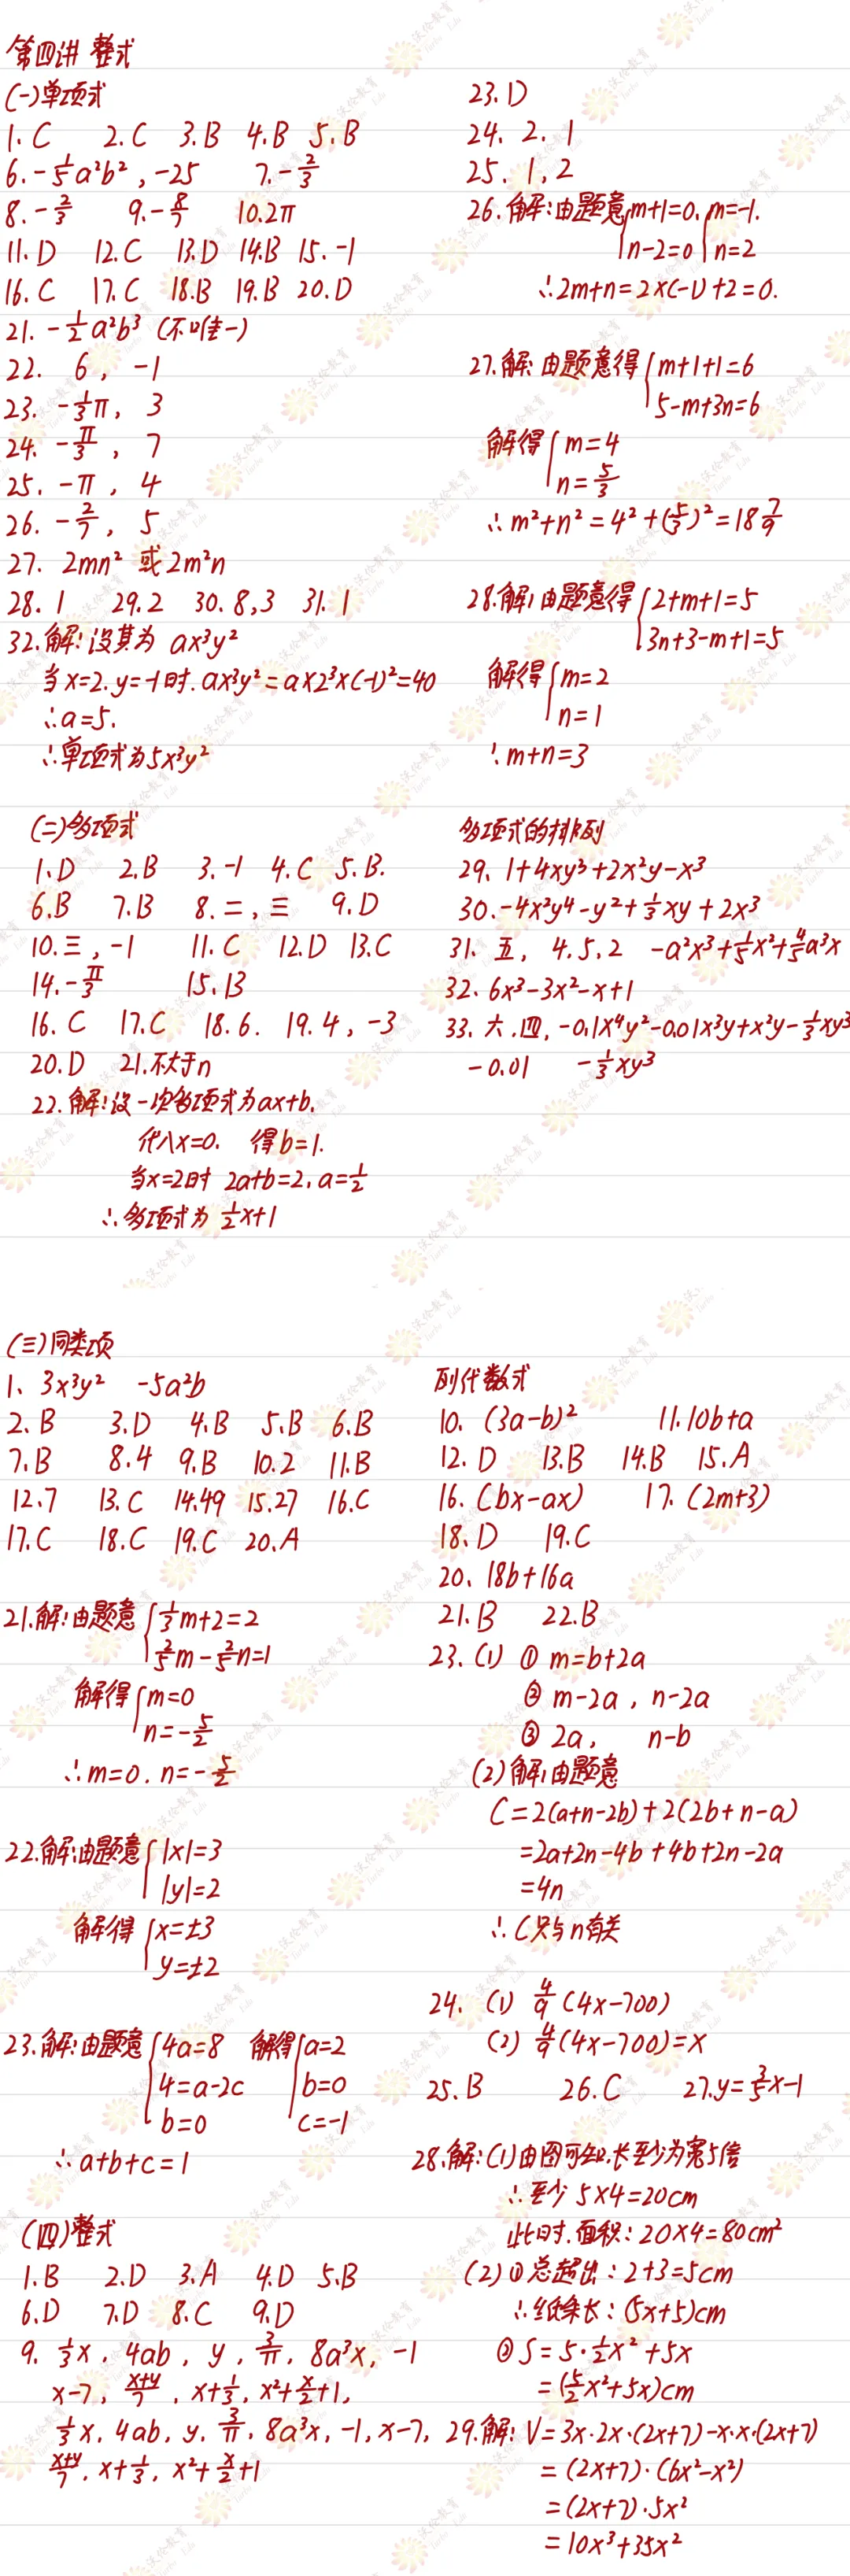 第四讲 整式
(一)单项式
1. C 2. C 3. B 4. B 5. B
6. -1/5a²b², -25 7. -2/3
8. -2/3 9. -8/7 10. 2π
11. D 12. C 13. D 14. B 15. -1
16. C 17. C 18. B 19. B 20. D
21. -1/2a²b³ (不唯一)
22. 6, -1
23. -1/3π, 3
24. -π/3, 7
25. -π, 4
26. -2/7, 5
27. 2mn² 或 2m²n
28. 1 29. 2 30. 8,3 31. 1
32. 解:设其为 ax³y²
当x=2. y=-1时. ax³y²=a×2³×(-1)²=40
∴a=5.
∴单项式为5x³y²
23. D
24. 2. 1
25. 1, 2
26. 解:由题意{m+1=0. {m=-1.
n-2=0 n=2
∴2m+n=2×(-1)+2=0.
27. 解:由题意得{m+1+1=6
5-m+3n=6
解得{m=4
n=5/3
∴m²+n²=4²+(5/3)²=18 7/9
28. 解:由题意得{2+m+1=5
3n+3-m+1=5
解得{m=2
n=1
∴m+n=3
(二)多项式
1. D 2. B 3. -1 4. C 5. B.
6. B 7. B 8. 二, 三 9. D
10. 三, -1 11. C 12. D 13. C
14. -π/3 15. 13
16. C 17. C 18. 6. 19. 4, -3
20. D 21. 不大于n
22. 解:设一次多项式为ax+b.
代入x=0. 得b=1.
当x=2时 2a+b=2. a=1/2
∴多项式为 1/2x+1
多项式的排列
29. 1+4xy³+2x²y-x³
30. -4x²y⁴-y²+1/3xy+2x³
31. 五, 4. 5. 2 -a²x³+1/5x²+4/5a³x
32. 6x³-3x²-x+1
33. 六. 四, -0.1x⁴y²-0.01x³y+x²y-1/3xy³
-0.01 -1/3xy³
(三)同类项
1. 3x³y² -5a²b
2. B 3. D 4. B 5. B 6. B
7. B 8. 4 9. B 10. 2 11. B
12. 7 13. C 14. 49 15. 27 16. C
17. C 18. C 19. C 20. A
21. 解:由题意{1/3m+2=2
2/5m-2/5n=1
解得{m=0
n=-5/2
∴m=0. n=-5/2
22. 解:由题意{|x|=3
|y|=2
解得{x=±3
y=±2
23. 解:由题意{4a=8 解得{a=2
4=a-2c b=0
b=0 c=-1
∴a+b+c=1
(四)整式
1. B 2. D 3. A 4. D 5. B
6. D 7. D 8. C 9. D
9. 1/3x, 4ab, y, 3/π, 8a³x, -1
x-7, x+y/7, x+1/3, x²+x/2+1,
1/3x, 4ab, y, 3/π, 8a³x, -1, x-7,
x+y/7, x+1/3, x²+x/2+1
列代数式
10. (3a-b)² 11. 10b+a
12. D 13. B 14. B 15. A
16. (bx-ax) 17. (2m+3)
18. D 19. C
20. 18b+16a
21. B 22. B
23. (1) ① m=b+2a
② m-2a, n-2a
③ 2a, n-b
(2)解:由题意
C=2(a+n-2b)+2(2b+n-a)
=2a+2n-4b+4b+2n-2a
=4n
∴C只与n有关
24. (1) 4/9(4x-700)
(2) 4/9(4x-700)=x
25. B 26. C 27. y=3/5x-1
28. 解:(1)由图可知.长至少为宽5倍
∴至少 5×4=20cm
此时.面积:20×4=80cm²
(2)①总超出:2+3=5cm
∴纸条长:(5x+5)cm
②S=5·1/2x²+5x
=(5/2x²+5x)cm
29. 解:V=3x·2x·(2x+7)-x·x·(2x+7)
=(2x+7)·(6x²-x²)
=(2x+7)·5x²
=10x³+35x²